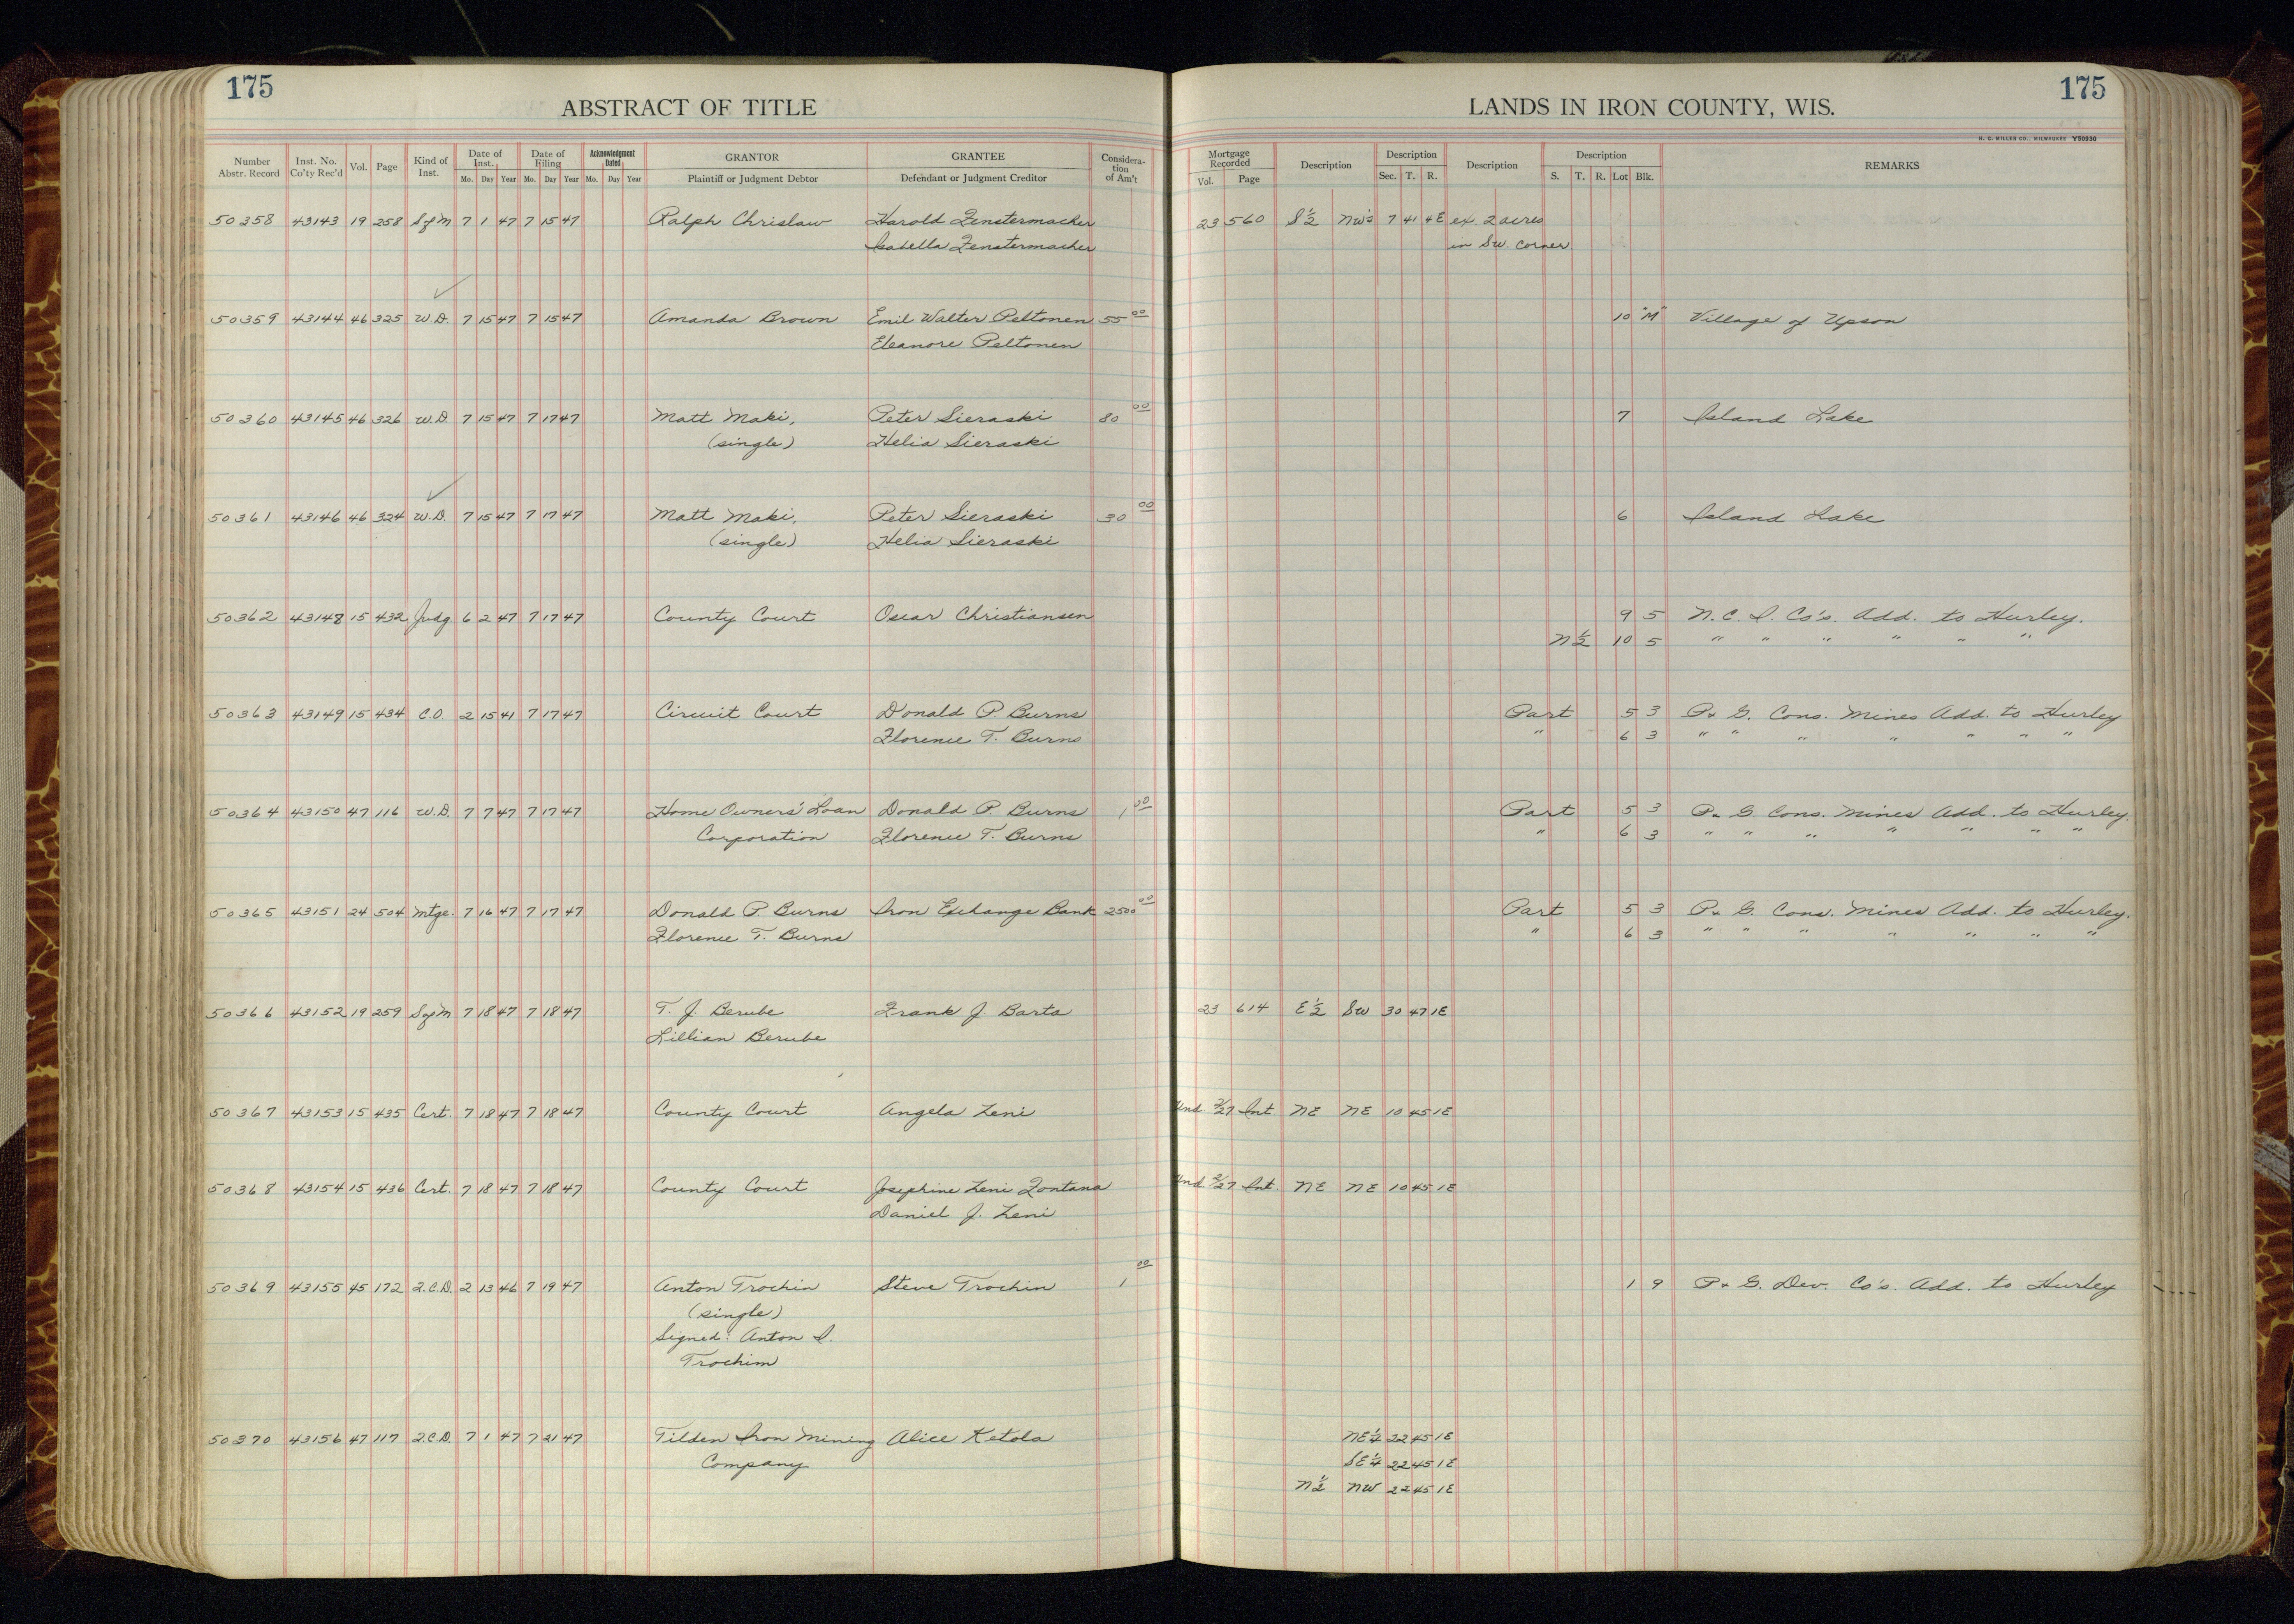 175
ABSTRACT OF TITLE
LANDS IN IRON COUNTY, WIS.
175
H. C. MILLER CO., MILWAUKEE Y50930
Number Abstr. Record Inst. No. Co'ty Rec'd Vol. Page Kind of Inst. Date of Inst. Mo. Day Year Date of Filing Mo. Day Year Acknowledgment Dated Mo. Day Year GRANTOR Plaintiff or Judgment Debtor GRANTEE Defendant or Judgment Creditor Consideration of Am't Mortgage Recorded Vol. Page Description Description Sec. T. R. Description Description S. T. R. Lot Blk. REMARKS
50358 43143 19 258 S of M 7 1 47 7 15 47 Ralph Chrislaw Harold Fenstermacher 23 560 S½ NW¼ 7 41 4E ex. 2 acres
Isabella Fenstermacher in SW. corner
50359 43144 46 325 W.D. 7 15 47 7 15 47 Amanda Brown Emil Walter Peltonen 55 00 10 "M" Village of Upson
Eleanore Peltonen
50360 43145 46 326 W.D. 7 15 47 7 17 47 Matt Maki, Peter Sieraski 80 00 7 Island Lake
(single) Helia Sieraski
50361 43146 46 324 W.D. 7 15 47 7 17 47 Matt Maki, Peter Sieraski 30 00 6 Island Lake
(single) Helia Sieraski
50362 43148 15 432 Judg. 6 2 47 7 17 47 County Court Oscar Christiansen 9 5 N. C. I. Co's. Add. to Hurley.
N½ 10 5 " " " " " "
50363 43149 15 434 C.O. 2 15 41 7 17 47 Circuit Court Donald P. Burns Part 5 3 P. & G. Cons. Mines Add. to Hurley
Florence T. Burns " 6 3 " " " " " " "
50364 43150 47 116 W.D. 7 7 47 7 17 47 Home Owners' Loan Donald P. Burns 1 00 Part 5 3 P. & G. Cons. Mines Add. to Hurley.
Corporation Florence T. Burns " 6 3 " " " " " " "
50365 43151 24 504 Mtge. 7 16 47 7 17 47 Donald P. Burns Iron Exchange Bank 2500 00 Part 5 3 P. & G. Cons. Mines Add. to Hurley.
Florence T. Burns " 6 3 " " " " " " "
50366 43152 19 259 S of M 7 18 47 7 18 47 T. J. Berube Frank J. Barta 23 614 E½ SW 30 47 1E
Lillian Berube
50367 43153 15 435 Cert. 7 18 47 7 18 47 County Court Angela Zeni Und 2/27 Int NE NE 10 45 1E
50368 43154 15 436 Cert. 7 18 47 7 18 47 County Court Josephine Zeni Fontana Und 2/27 Int. NE NE 10 45 1E
Daniel J. Zeni
50369 43155 45 172 Q.C.D. 2 13 46 7 19 47 Anton Trochin Steve Trochin 1 00 1 9 P. & G. Dev. Co's. Add. to Hurley
(single)
Signed: Anton I.
Trochim
50370 43156 47 117 Q.C.D. 7 1 47 7 21 47 Tilden Iron Mining Alice Ketola NE¼ 22 45 1E
Company SE¼ 22 45 1E
N½ NW 22 45 1E